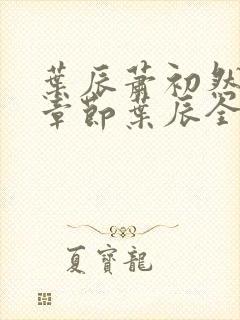 葉辰蕭初然
章節葉辰全
夏寶龍